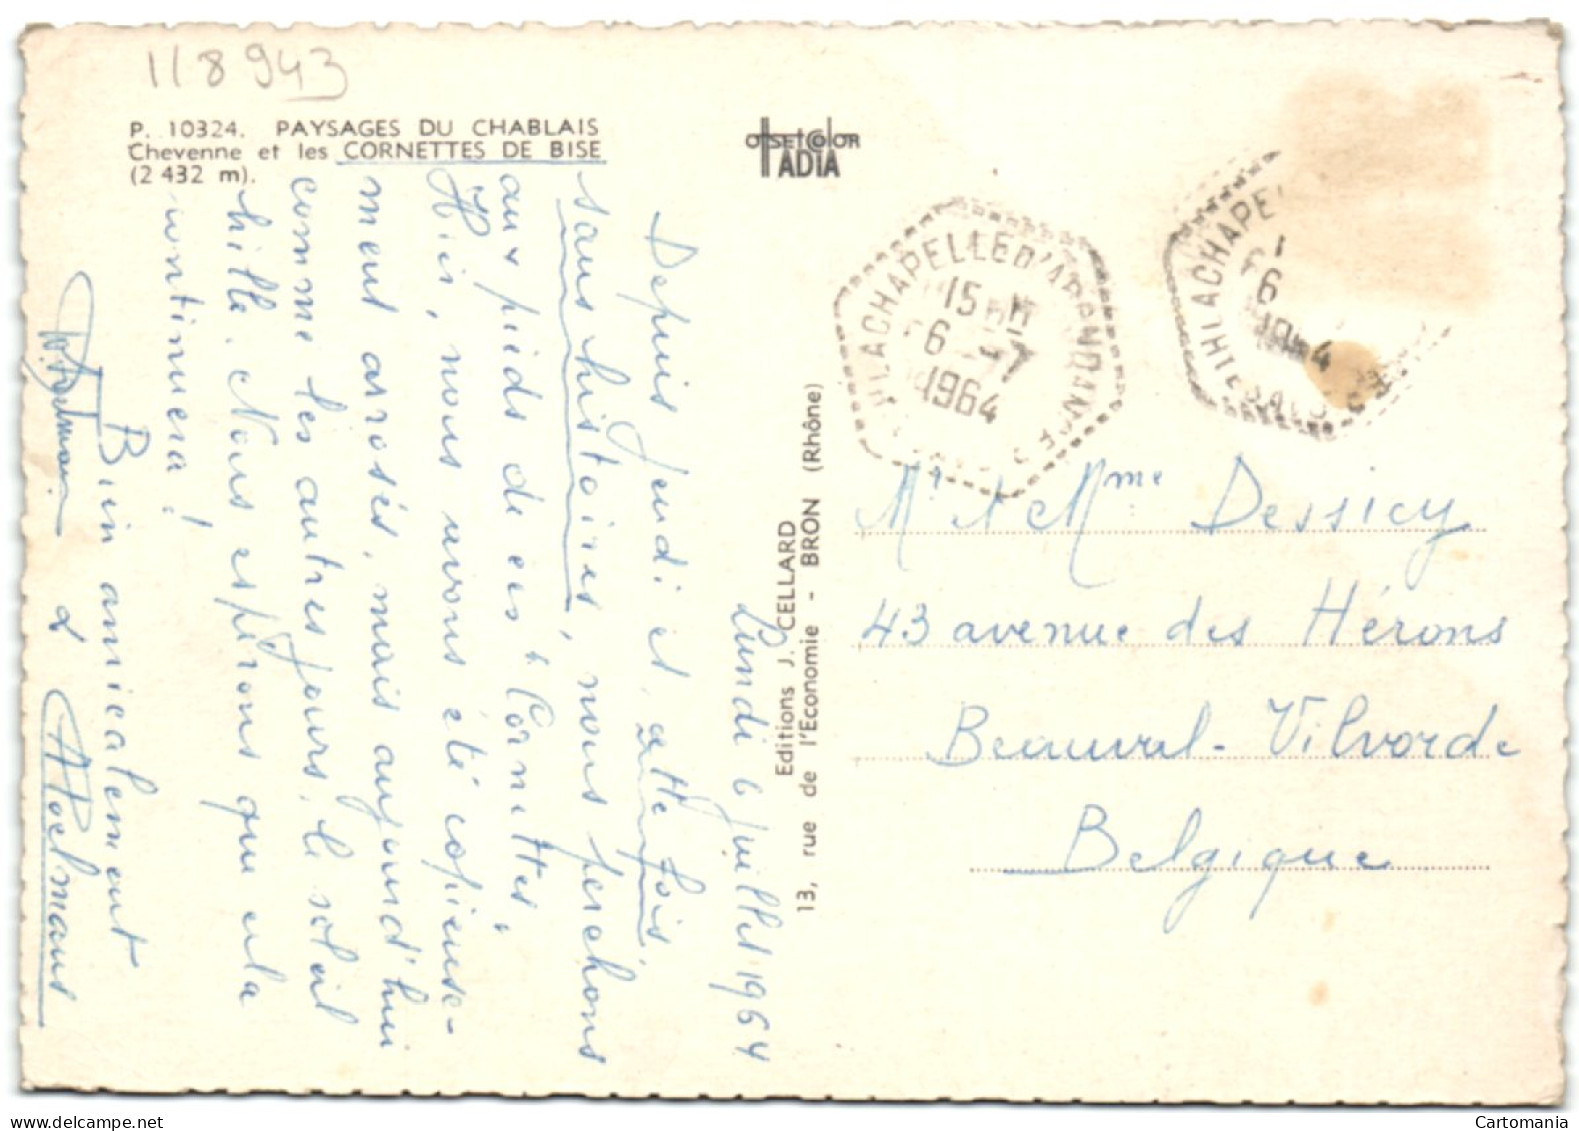 118943
P. 10324. PAYSAGES DU CHABLAIS
Chevenne et les CORNETTES DE BISE
(2 432 m).
OFFSETCOLOR
IADIA
Editions J. CELLARD
13, rue de l'Economie - BRON (Rhône)
LA CHAPELLE D'ABONDANCE
15 H
6 -7
1964
LA CHAPE
6
Lundi 6 juillet 1964
Depuis jeudi et, cette fois,
sans histoires, nous perchons
aux pieds de ces "Cornettes,
Hier, nous avons été copieuse-
ment arrosés, mais aujourd'hui
comme les autres jours, le soleil
brille. Nous espérons que cela
continuera!
Bien amicalement
&
Poelmans
Mr et Mme Dessicy
43 avenue des Hérons
Beauval - Vilvorde
Belgique
Cartomania